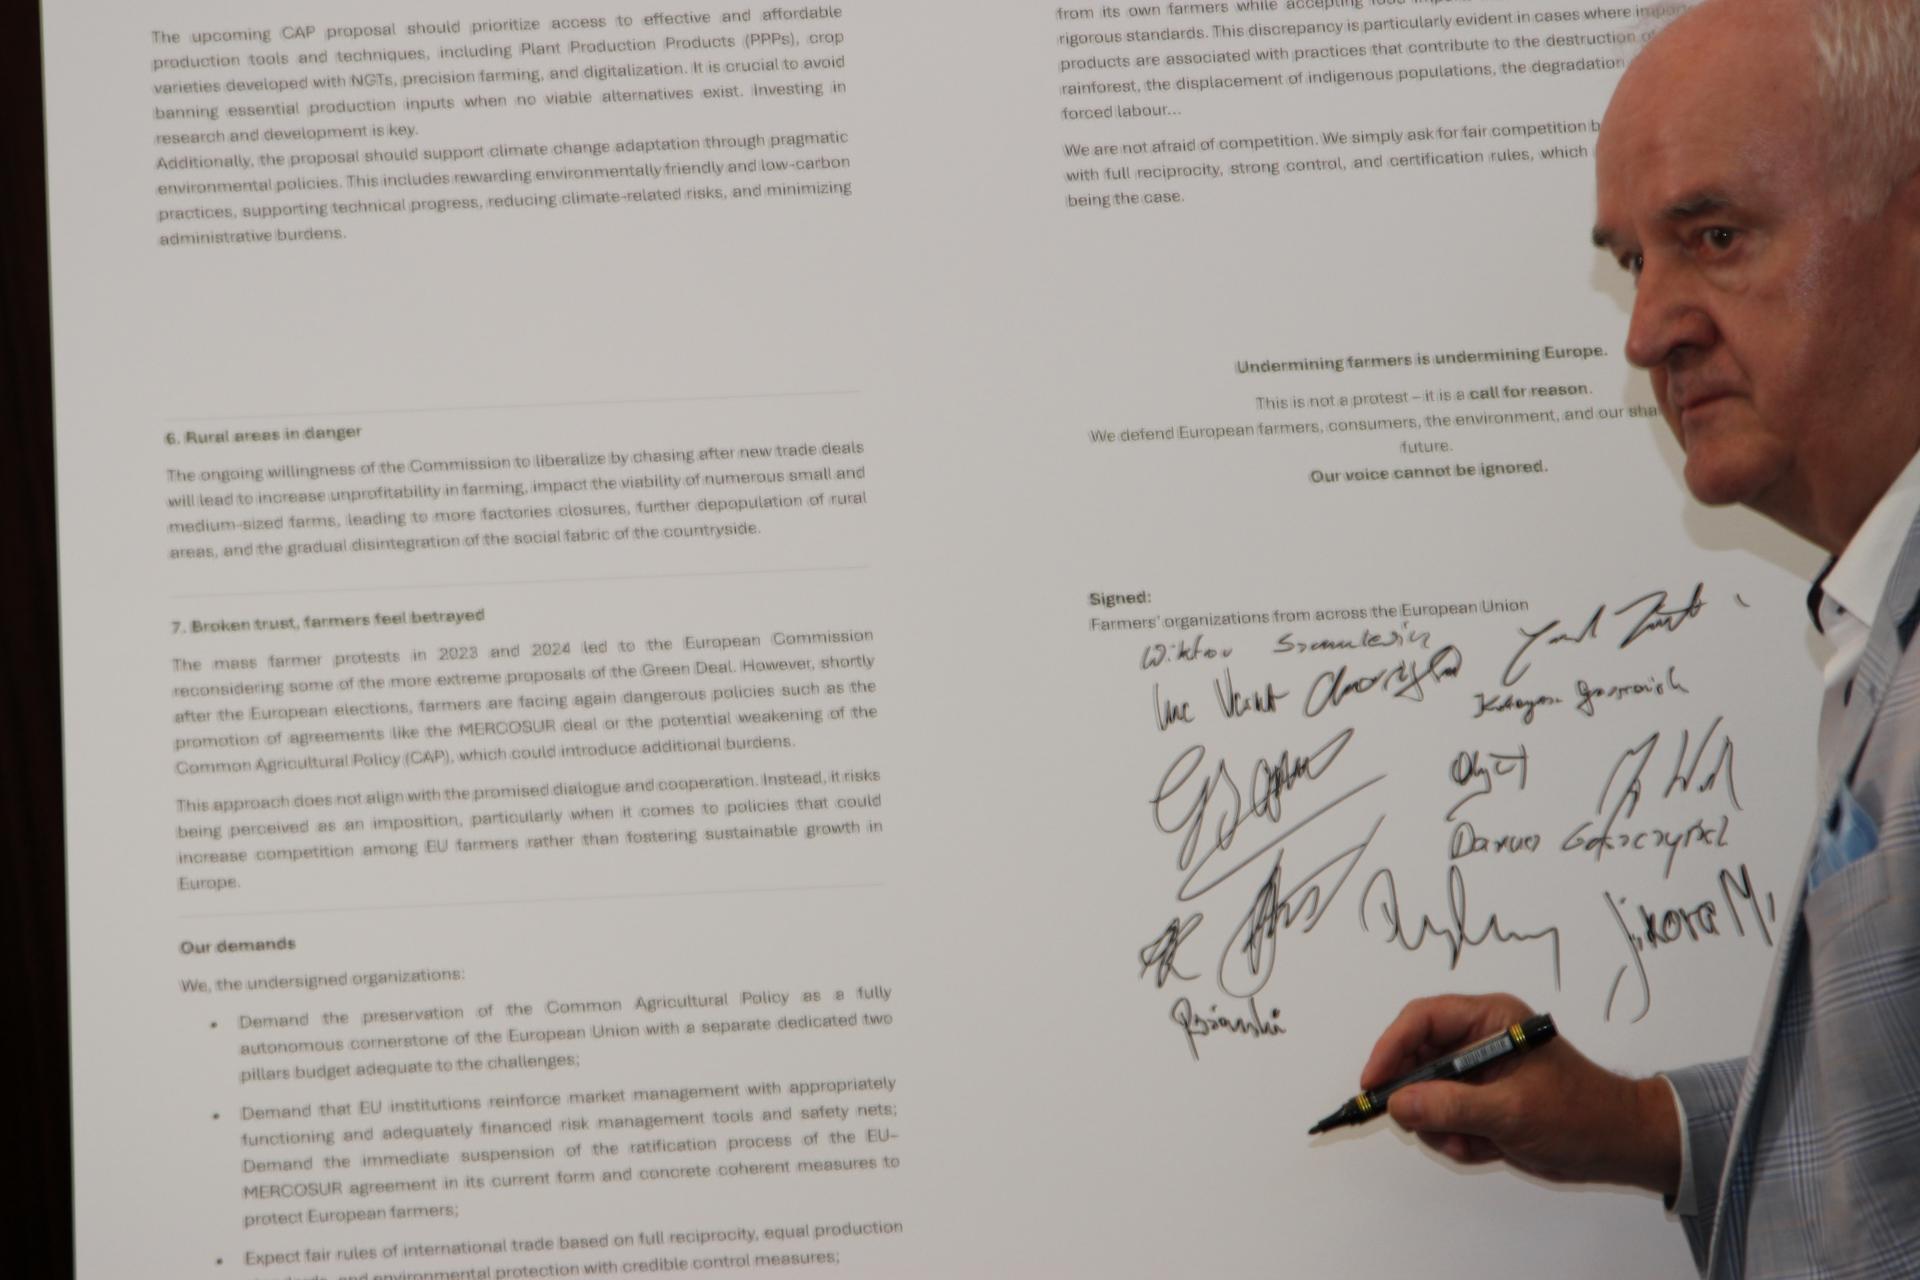 The upcoming CAP proposal should prioritize access to effective and affordable
production tools and techniques, including Plant Production Products (PPPs), crop
varieties developed with NGTs, precision farming, and digitalization. It is crucial to avoid
banning essential production inputs when no viable alternatives exist. Investing in
research and development is key.
Additionally, the proposal should support climate change adaptation through pragmatic
environmental policies. This includes rewarding environmentally friendly and low-carbon
practices, supporting technical progress, reducing climate-related risks, and minimizing
administrative burdens.
6. Rural areas in danger
The ongoing willingness of the Commission to liberalize by chasing after new trade deals
will lead to increase unprofitability in farming, impact the viability of numerous small and
medium-sized farms, leading to more factories closures, further depopulation of rural
areas, and the gradual disintegration of the social fabric of the countryside.
7. Broken trust, farmers feel betrayed
The mass farmer protests in 2023 and 2024 led to the European Commission
reconsidering some of the more extreme proposals of the Green Deal. However, shortly
after the European elections, farmers are facing again dangerous policies such as the
promotion of agreements like the MERCOSUR deal or the potential weakening of the
Common Agricultural Policy (CAP), which could introduce additional burdens.
This approach does not align with the promised dialogue and cooperation. Instead, it risks
being perceived as an imposition, particularly when it comes to policies that could
increase competition among EU farmers rather than fostering sustainable growth in
Europe.
Our demands
We, the undersigned organizations:
• Demand the preservation of the Common Agricultural Policy as a fully
autonomous cornerstone of the European Union with a separate dedicated two
pillars budget adequate to the challenges;
• Demand that EU institutions reinforce market management with appropriately
functioning and adequately financed risk management tools and safety nets;
Demand the immediate suspension of the ratification process of the EU–
MERCOSUR agreement in its current form and concrete coherent measures to
protect European farmers;
• Expect fair rules of international trade based on full reciprocity, equal production
and environmental protection with credible control measures;
from its own farmers while accepting
rigorous standards. This discrepancy is particularly evident in cases where
products are associated with practices that contribute to the destruction
rainforest, the displacement of indigenous populations, the degradation
forced labour...
We are not afraid of competition. We simply ask for fair competition
with full reciprocity, strong control, and certification rules, which
being the case.
Undermining farmers is undermining Europe.
This is not a protest – it is a call for reason.
We defend European farmers, consumers, the environment, and our
future.
Our voice cannot be ignored.
Signed:
Farmers' organizations from across the European Union
Wiktor
Jikora M.